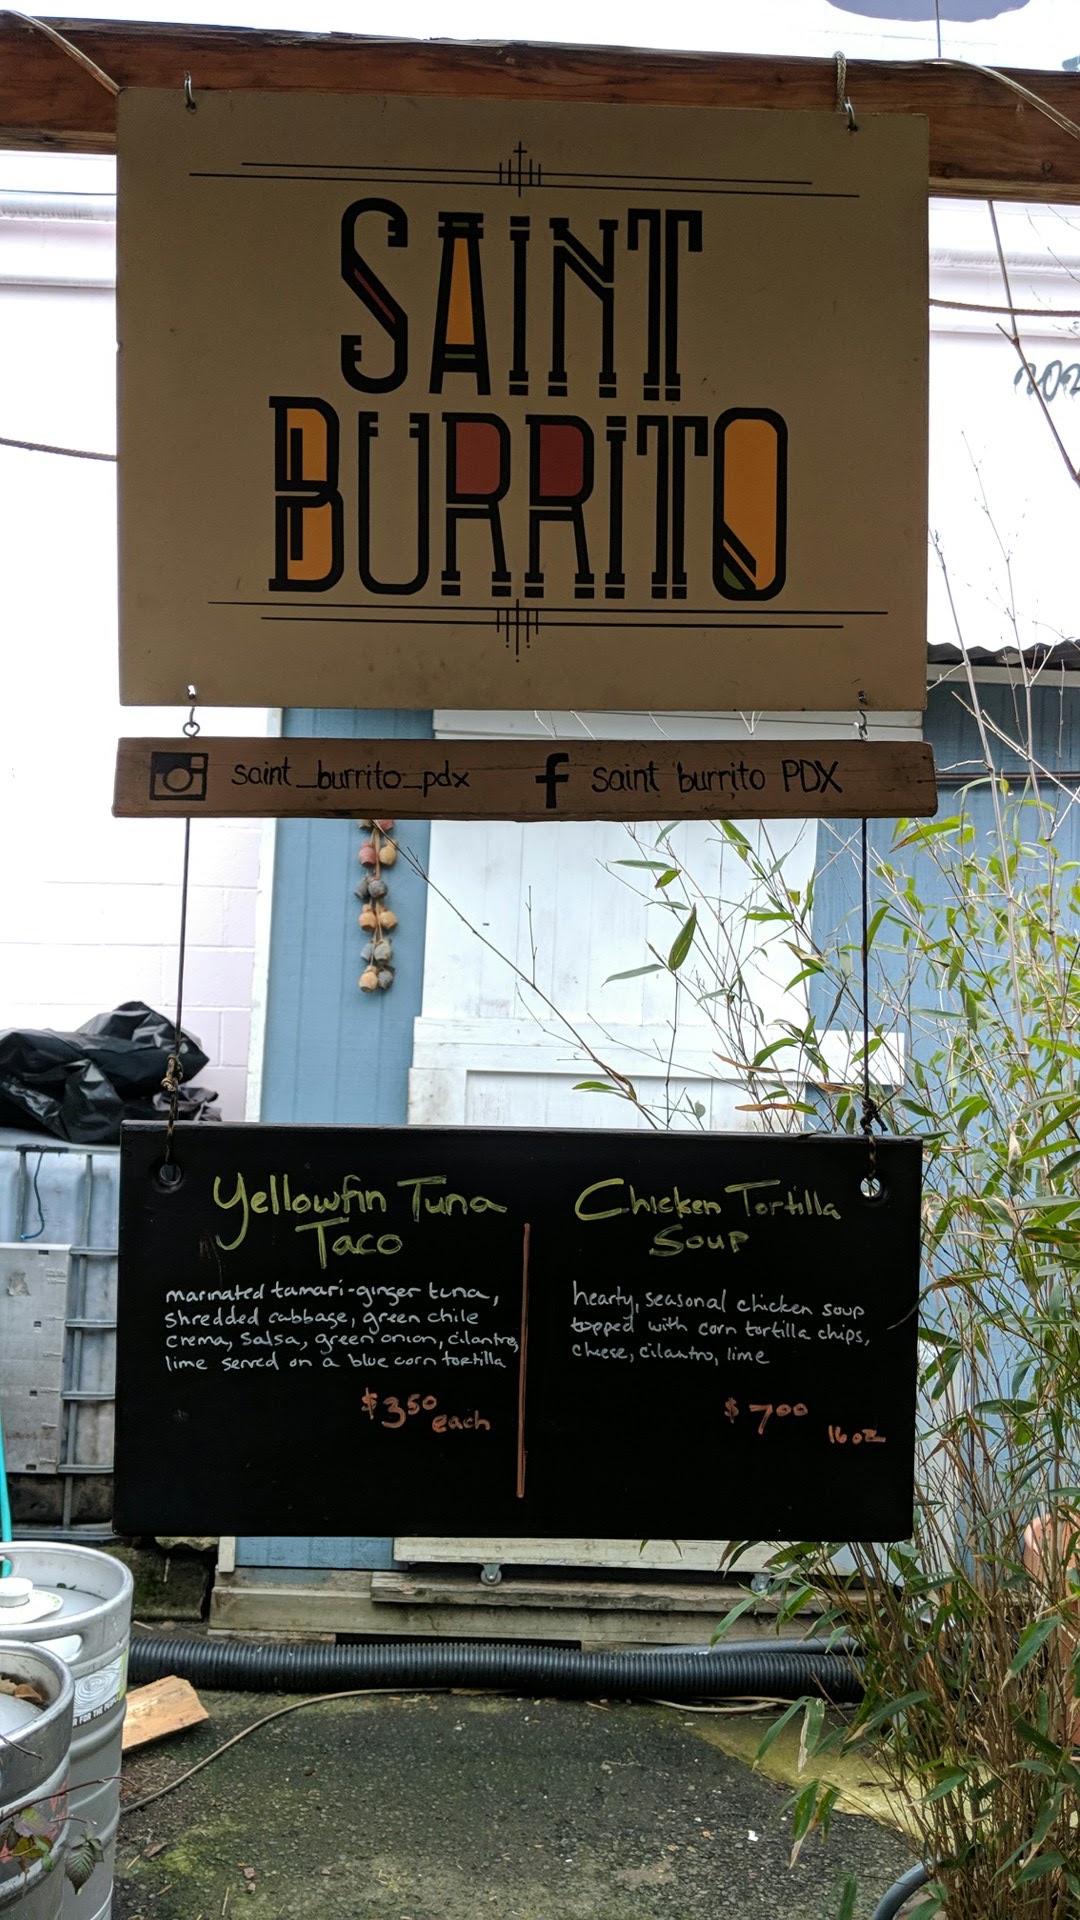 SAINT
BURRITO
saint_burrito_pdx
f saint burrito PDX
Yellowfin Tuna
Taco
marinated tamari-ginger tuna,
shredded cabbage, green chile
crema, salsa, green onion, cilantro,
lime served on a blue corn tortilla
$3.50 each
Chicken Tortilla
Soup
hearty, seasonal chicken soup
topped with corn tortilla chips,
cheese, cilantro, lime
$7.00
16 oz
FOR THE PEOPLE